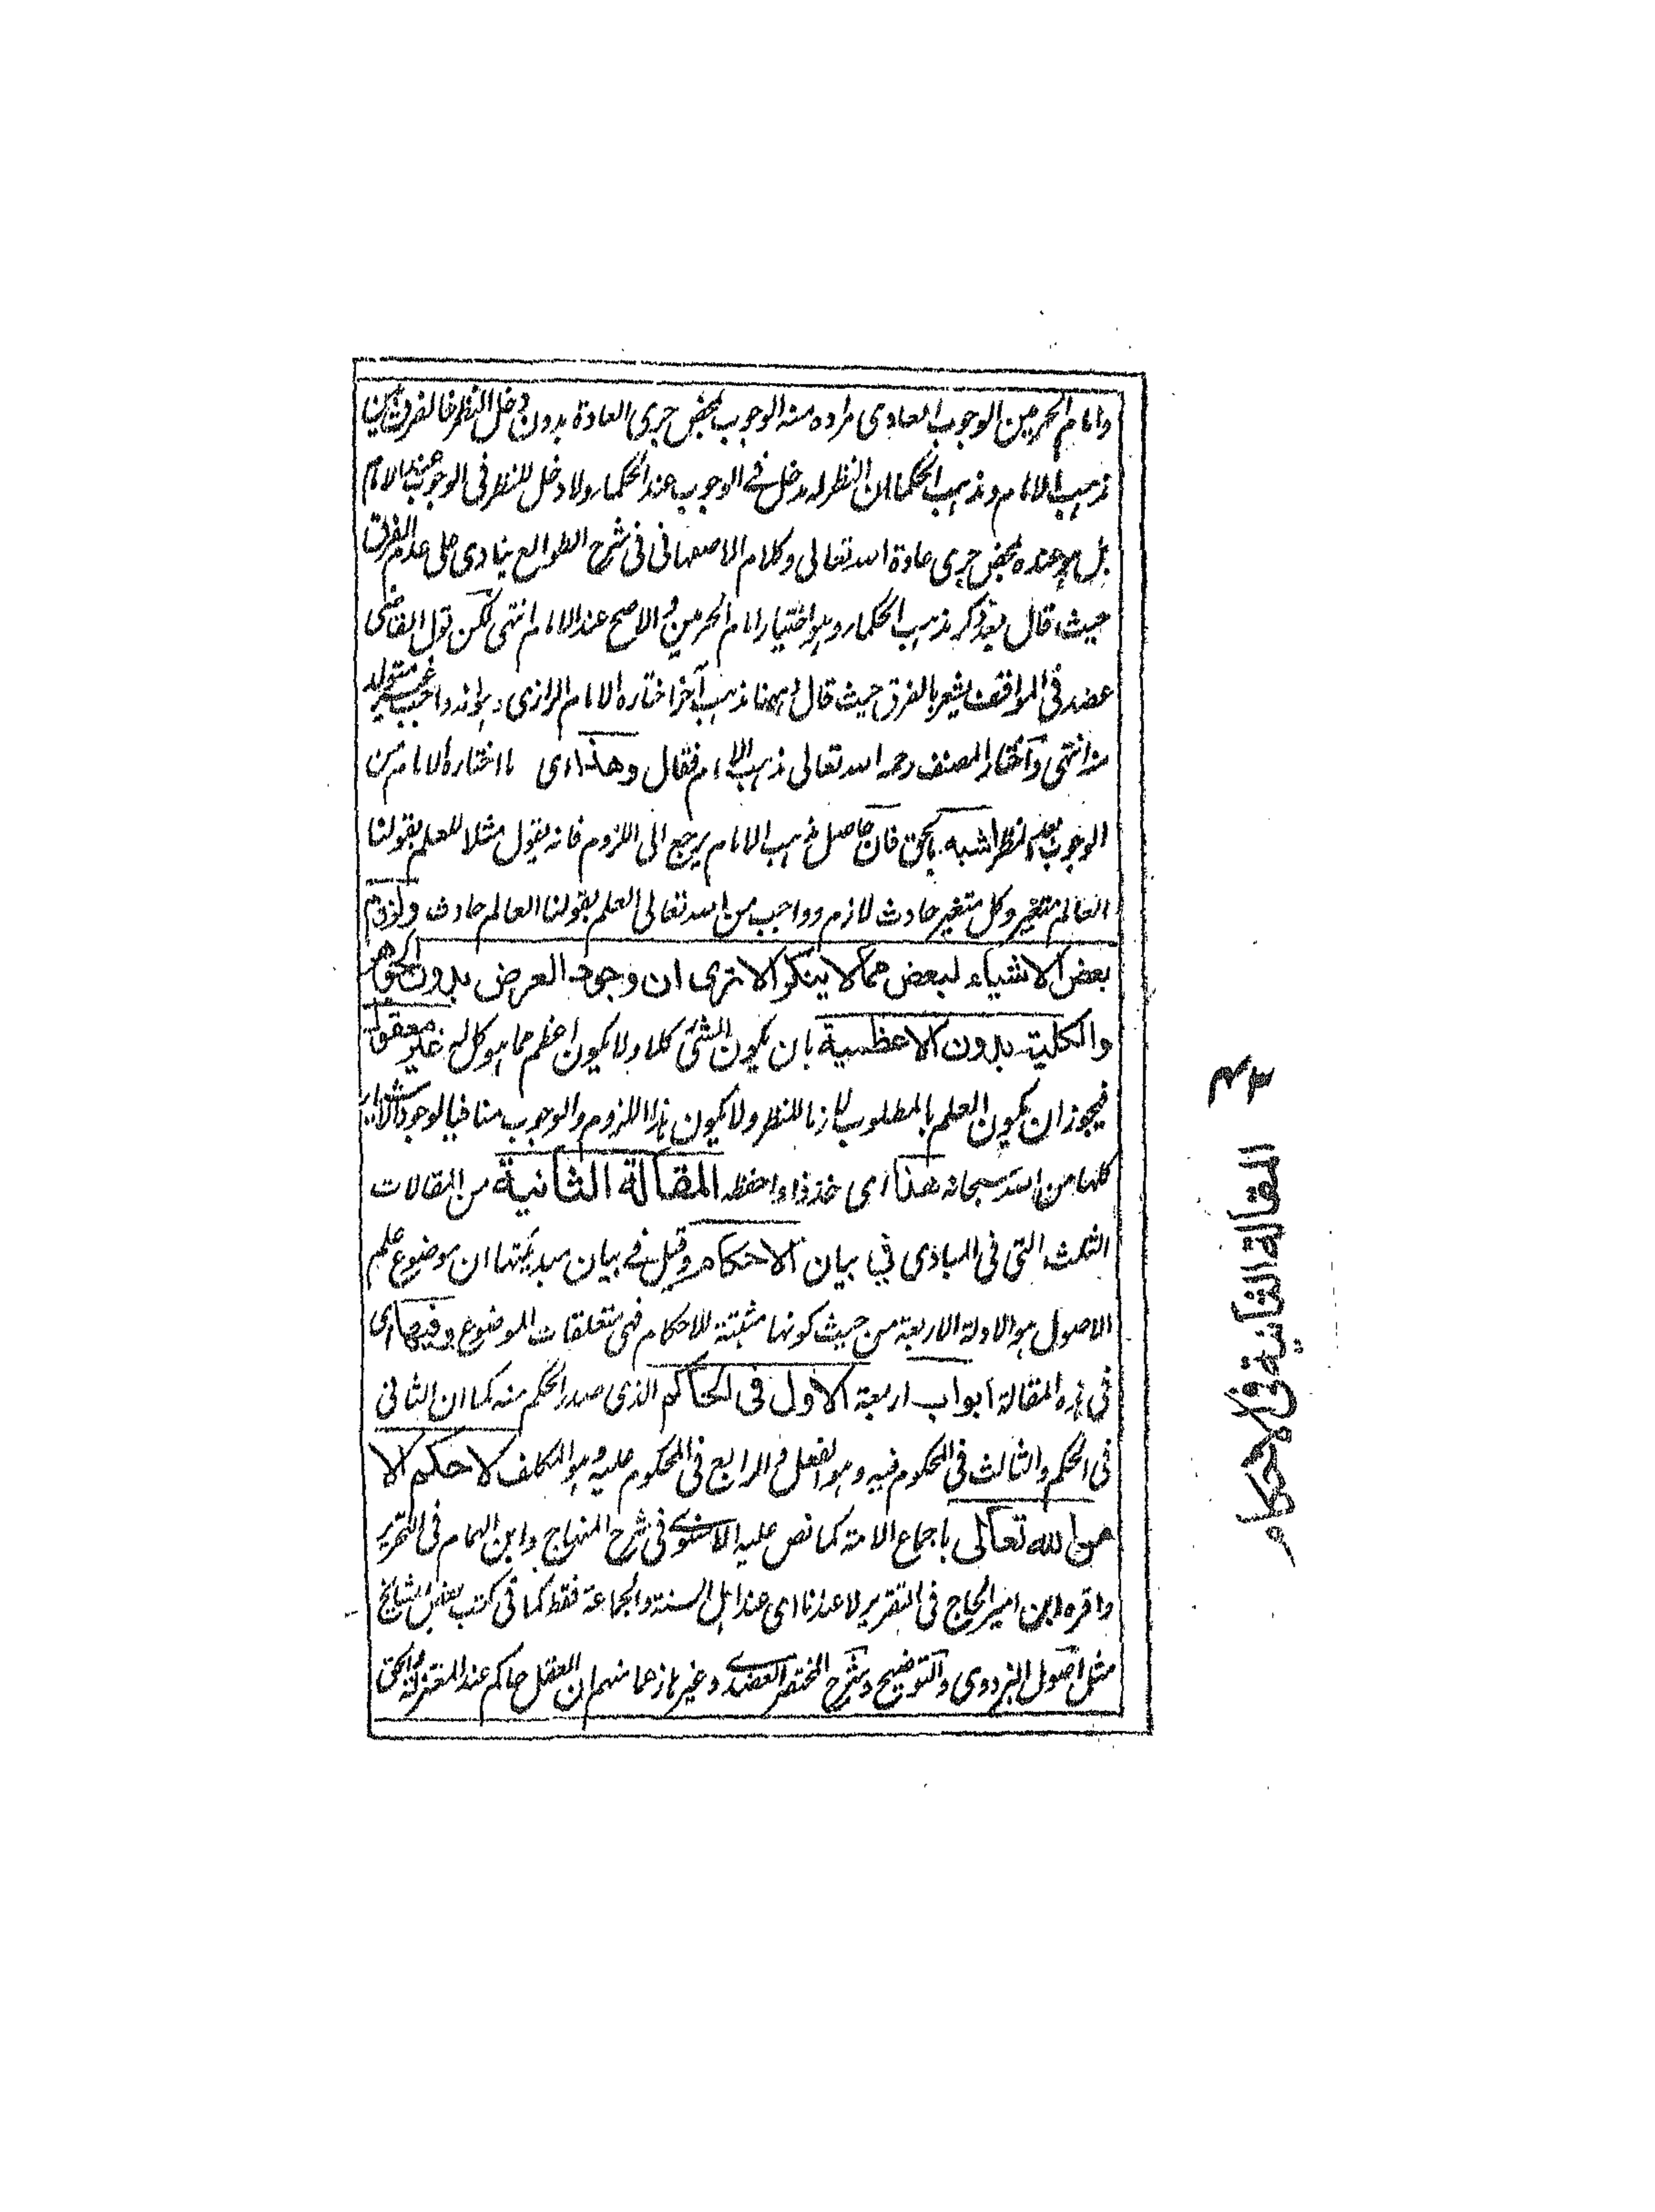 وامام الحرمين الوجوب العادى مراده منه الوجوب بمحض جرى العادة بدون دخل النظر فالفرق بين
مذهب الامام ومذهب الحكما ان النظر له دخل فى الوجوب عند الحكماء ولا دخل للنظر فى الوجوب عند الامام
بل هو عنده بمحض جرى عادة الله تعالى وكلام الاصفهانى فى شرح الطوالع ينادى على عدم الفرق
حيث قال بعد ذكر مذهب الحكماء وهو اختيار امام الحرمين والاصح عند الامام انتهى لكن قول القاضى
عضد فى المواقف يشعر بالفرق حيث قال ههنا مذهب آخر اختاره الامام الرازى وهو انه واجب غير متولد
منه انتهى واختار المصنف رحمه الله تعالى مذهب الامام فقال وهذا اى ما اختاره الامام من
الوجوب بعد النظر اشبه بالحق فان حاصل مذهب الامام يرجع الى اللزوم فانه يقول مثلا للعلم بقولنا
العالم متغير وكل متغير حادث لازم وواجب من الله تعالى العلم بقولنا العالم حادث ولزوم
بعض الاشياء لبعض مما لا ينكر الا ترى ان وجود العرض بدون الجوهر
والكلية بدون الاعظمية بان يكون الشئ كلا ولا يكون اعظم مما هو كل له غير معقول
فيجوز ان يكون العلم بالمطلوب لازما للنظر ولا يكون هذا اللزوم والوجوب منافيا لوجود الاشياء
كلها من الله سبحانه هذا اى خذ ذا واحفظه المقالة الثانية من المقالات
الثلث التى فى المبادى فى بيان الاحكام وقيل فى بيان مبدئيتها ان موضوع علم
الاصول هو الادلة الاربعة من حيث كونها مثبتة للاحكام فهى متعلقات الموضوع وفيها اى
فى هذه المقالة ابواب اربعة الاول فى الحاكم الذى صدر الحكم منه كما ان الثانى
فى الحكم والثالث فى المحكوم فيه وهو الفعل والرابع فى المحكوم عليه وهو المكلف لا حكم الا
من الله تعالى باجماع الامة كما نص عليه الاسنوى فى شرح المنهاج وابن الهمام فى التحرير
واقره ابن امير الحاج فى التقرير لا عندنا اى عند اهل السنة والجماعة فقط كما فى كتب بعض المشايخ
مثل اصول البزدوى والتوضيح وشرح المختصر العضدى وغيرها زعما منهم ان العقل حاكم عند المعتزلة والحق
٤٣
المقالة الثانية فى الاحكام